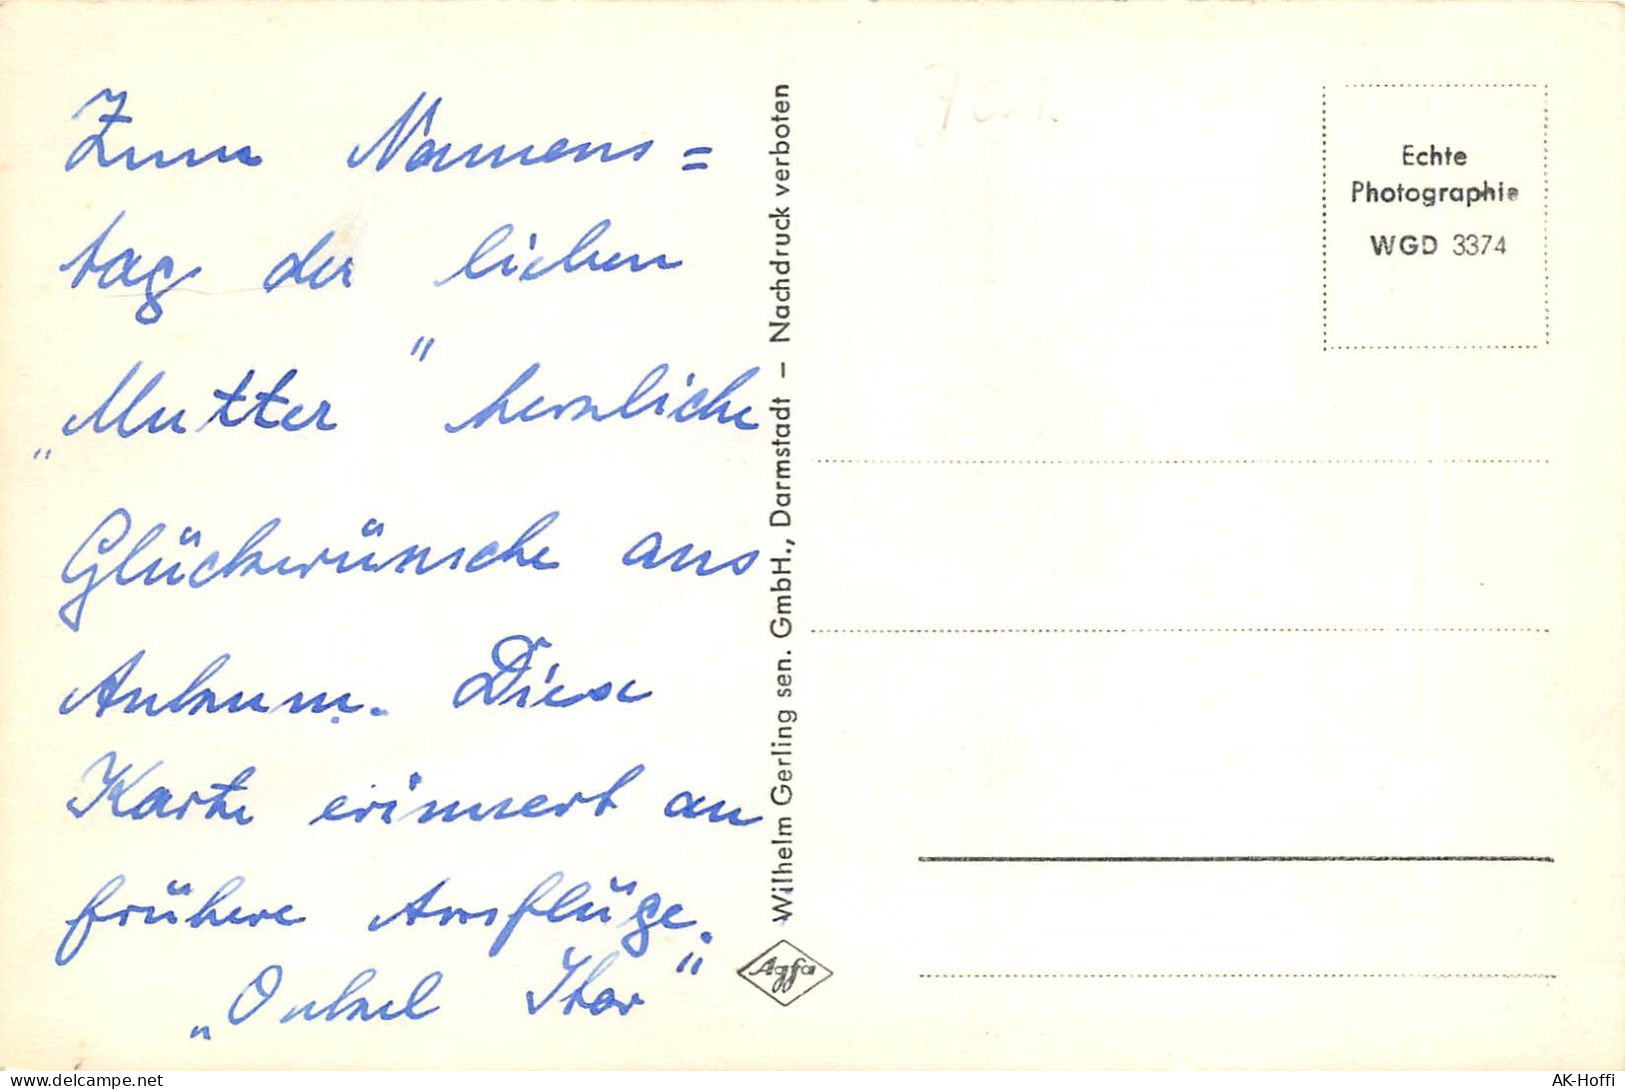 Zum Namens=
tag der lieben
„Mutter" herzliche
Glückwünsche aus
Ankum. Diese
Karte erinnert an
frühere Ausflüge.
„Onkel
Wilhelm Gerling sen. GmbH., Darmstadt – Nachdruck verboten
Agfa
Echte
Photographie
WGD 3374
delcampe.net
AK-Hoffi